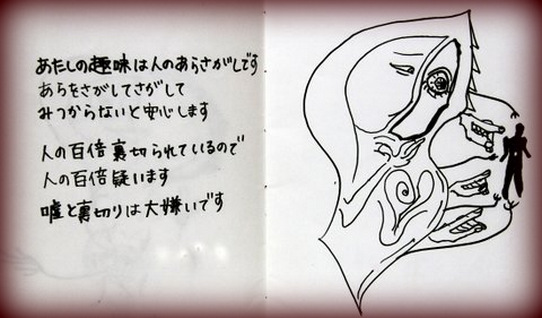 あたしの趣味は人のあらさがしです
あらをさがしてさがして
みつからないと安心します
人の百倍裏切られているので
人の百倍疑います
嘘と裏切りは大嫌いです